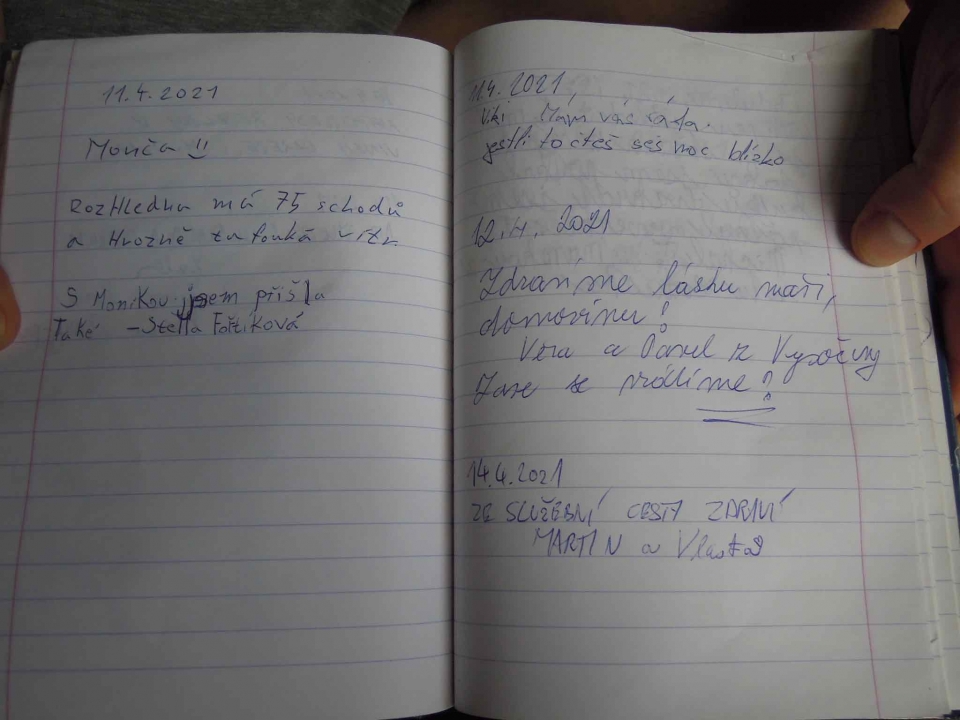 11.4.2021
Monča !!
Rozhledna má 75 schodů
a Hrozně tu fouká vítr
S Monikou jsem přišla
Také - Stella Foftíková
11.4. 2021,
Viki Mám vás ráda.
jestli to čteš seš moc blízko
12.4. 2021
Zdravíme lásku naši,
domovinu!
Věra a Pavel z Vysočiny
Zase se vrátíme!
14.4.2021
ZE SLUŽEBNÍ CESTY ZDRAVÍ
MARTIN a Vlasta